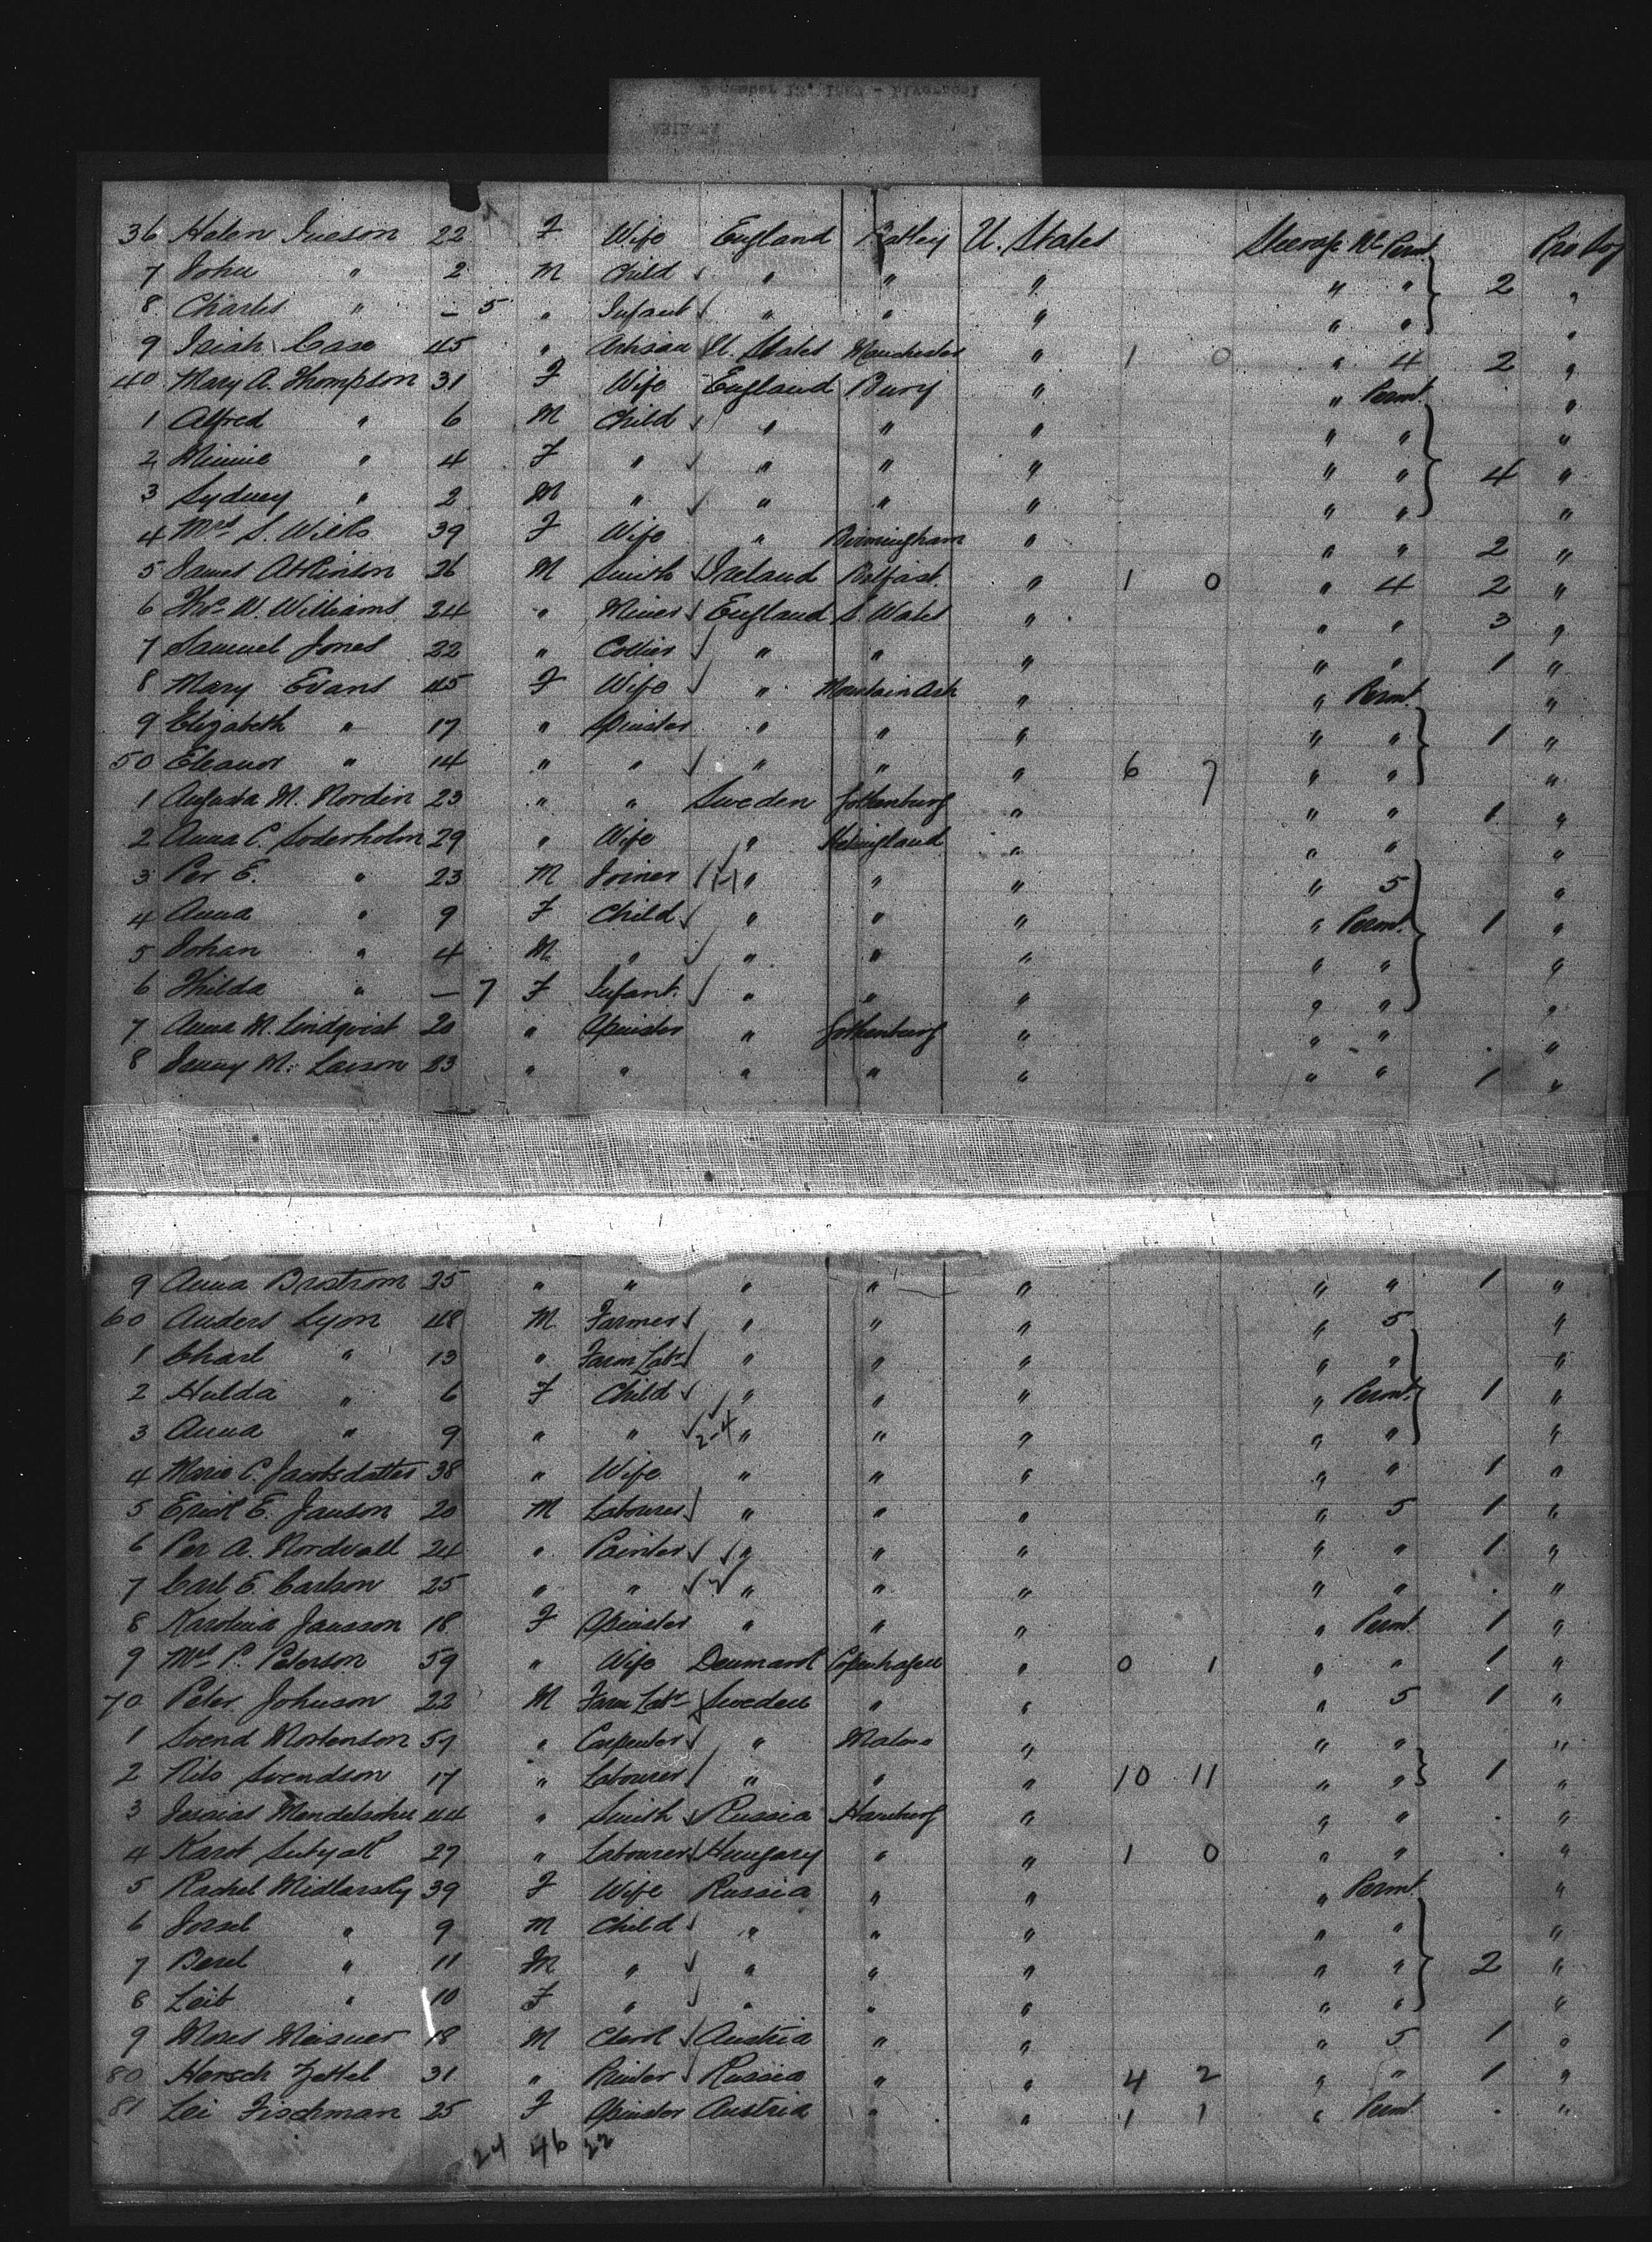 36 Helen Iveson 22 F Wife England Batley U. States Steerage Perm. Pro Log
7 John " 2 M Child " " " " " 2 "
8 Charles " — 5 " Infant " " " " " "
9 Isiah Case 45 " Artisan U. States Manchester " 1 0 " 4 2 "
40 Mary A. Thompson 31 F Wife England Bury " " Permt. "
1 Alfred " 6 M Child " " " " " "
2 Minnie " 4 F " " " " " " 4 "
3 Sydney " 2 M " " " " " " "
4 Mrs S. Wilks 39 F Wife " Birmingham " " " 2 "
5 James Atkinson 26 M Smith Ireland Belfast " 1 0 " 4 2 "
6 Thos W. Williams 24 " Miner England S. Wales " " " 3 "
7 Samuel Jones 22 " Collier " " " " " 1 "
8 Mary Evans 45 F Wife " Mountain Ash " " Permt. "
9 Elizabeth " 17 " Spinster " " " " " 1 "
50 Eleanor " 14 " " " " " 6 7 " " "
1 Augusta M. Nordin 23 " " Sweden Gothenburg " " " 1 "
2 Anna C. Soderholm 29 " Wife " Helsingland " " " "
3 Per E. " 23 M Joiner " " " " 5 "
4 Anna " 9 F Child " " " " Permt. 1 "
5 Johan " 4 M " " " " " " "
6 Hilda " — 7 F Infant " " " " " "
7 Anna M. Lindqvist 20 " Spinster " Gothenburg " " " "
8 Jenny M. Larson 23 " " " " " " " 1 "
9 Anna Brostrom 25 " " " " " " " 1 "
60 Anders Lyon 48 M Farmer " " " " 5 "
1 Charl " 13 " Farm Labr " " " " " "
2 Hulda " 6 F Child " " " " Permt. 1 "
3 Anna " 9 " " 2-4 " " " " " "
4 Marie C. Jacobsdatter 38 " Wife " " " " " 1 "
5 Erick E. Janson 20 M Labourer " " " " 5 1 "
6 Per A. Nordvall 24 " Painter " " " " " 1 "
7 Carl E. Carlson 25 " " " " " " " "
8 Karolina Jansson 18 F Spinster " " " " Permt. 1 "
9 Mrs P. Peterson 59 " Wife Denmark Copenhagen " 0 1 " " 1 "
70 Peter Johnson 22 M Farm Labr Sweden " " " 5 1 "
1 Svend Mortenson 57 " Carpenter " Malmo " " " "
2 Nils Svendson 17 " Labourer " " " 10 11 " " 1 "
3 Jessias Mendelsohn 44 " Smith Russia Hamburg " " " "
4 27 " Labourer Hungary " " 1 0 " " "
5 Rachel Midlarsky 39 F Wife Russia " " " Permt. "
6 " 9 M Child " " " " " "
7 " 11 M " " " " " " 2 "
8 Leib " 10 F " " " " " " "
9 Moses Meisner 18 M Clerk Austria " " " 5 1 "
80 Hersch Zettel 31 " Russia " " 4 2 " " 1 "
81 Lei Fischman 25 F Spinster Austria " " 1 1 " Permt. "
24 46 22